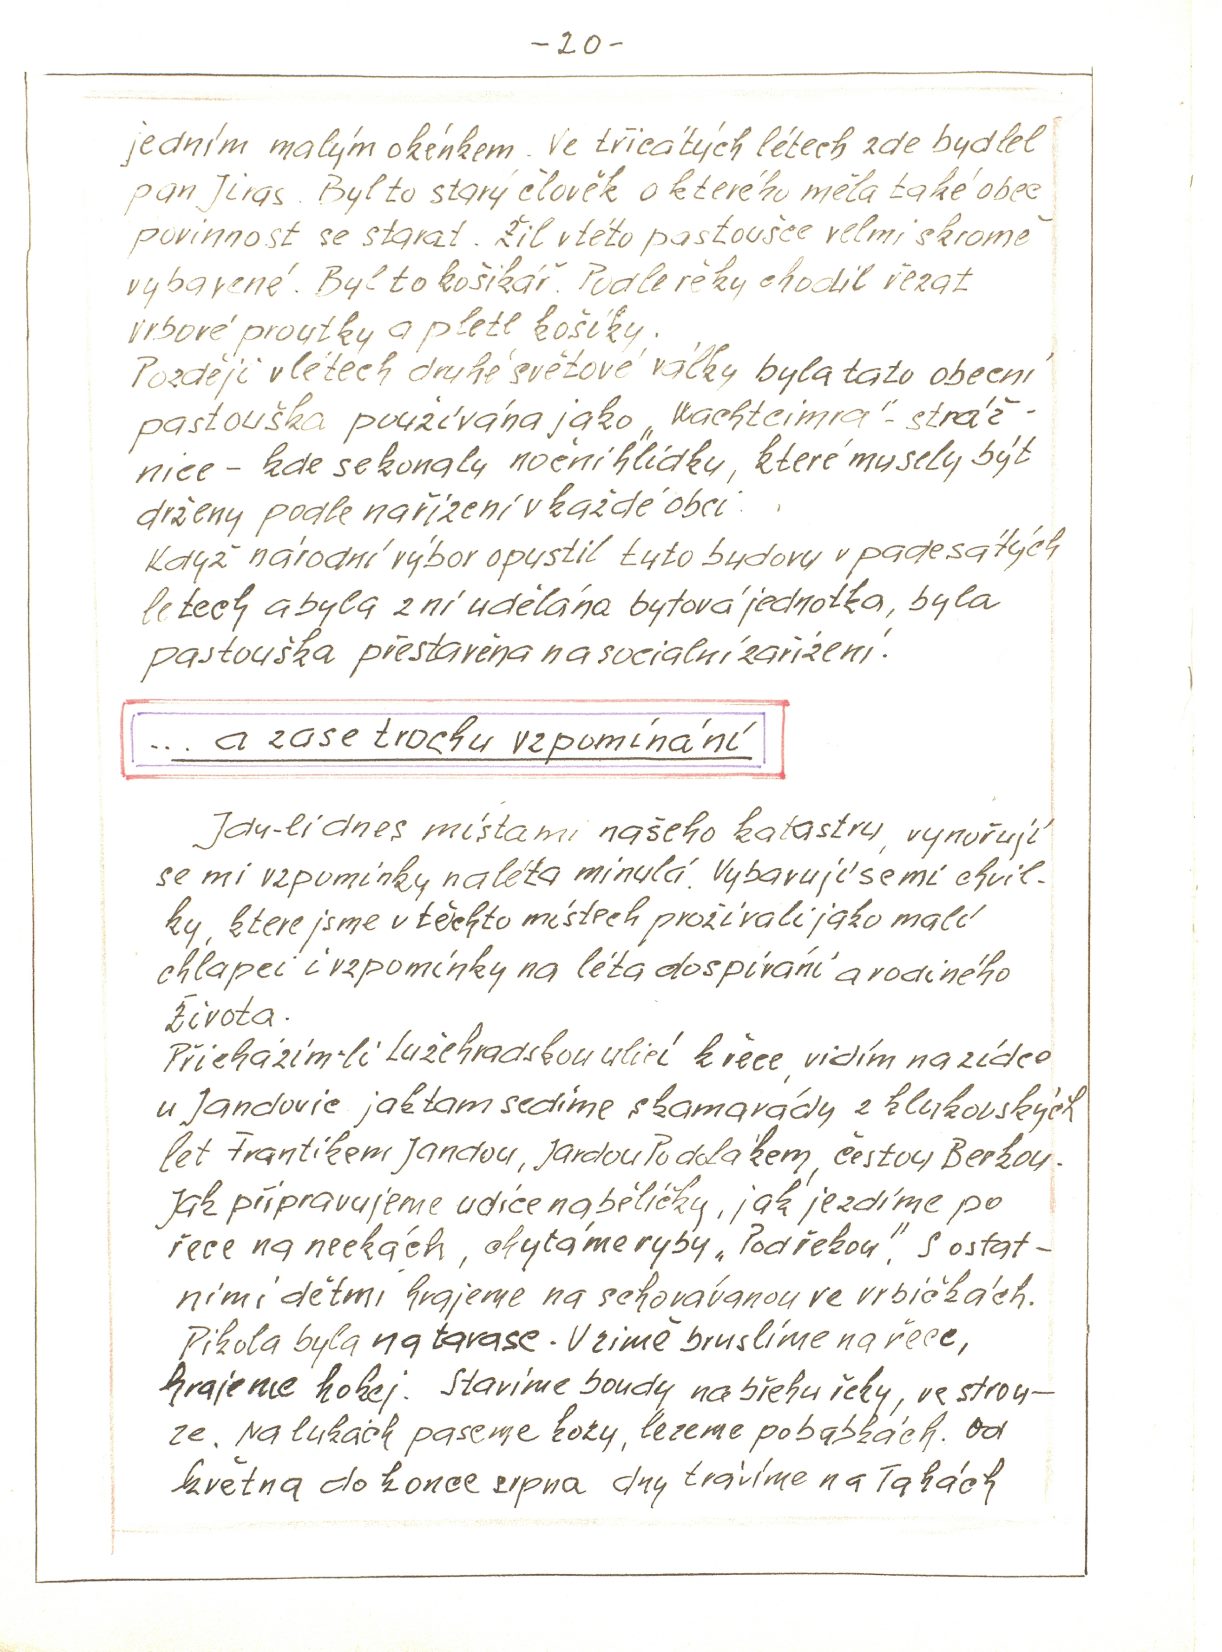 -20-
jedním malým okénkem. Ve třicátých létech zde bydlel
pan Jiras. Byl to starý člověk o kterého měla také obec
povinnost se starat. Žil v této pastoušce velmi skromě
vybavené. Byl to košikář. Podle řéky chodil řezat
vrbové proutky a pletl košíky.
Později v létech druhé světové války byla tato obecní
pastouška používána jako „Wachtcimra"- stráž-
nice - kde se konaly noční hlídky, které musely být
drženy podle nařízení v každé obci.
Když národní výbor opustil tuto budovu v padesátých
letech a byla z ní udělána bytová jednotka, byla
pastouška přestavěna na socialní zařízení.
... a zase trochu vzpomínání
Jdu-li dnes místami našeho katastru, vynořují
se mi vzpomínky na léta minulá. Vybavují se mi chvil-
ky, ktere jsme v těchto místech prožívali jako malí
chlapci i vzpomínky na léta dospívání a rodiného
života.
Přicházím-li Lužehradskou ulicí k řece, vidím na zídce
u Jandovic jak tam sedíme s kamarády z klukovských
let Frantíkem Jandou, Jardou Podolákem, Čestou Berkou.
Jak připravujeme udice na běličky, jak jezdíme po
řece na neckách, chytáme ryby „Pod řekou". S ostat-
ními dětmi hrajeme na schovávanou ve vrbičkách.
Pikola byla na tarase. V zimě bruslíme na řece,
hrajeme hokej. Stavíme boudy na břehu řeky, ve strou-
ze. Na lukách paseme kozy, lezeme po babkách. Od
května do konce srpna dny trávíme na Tahách